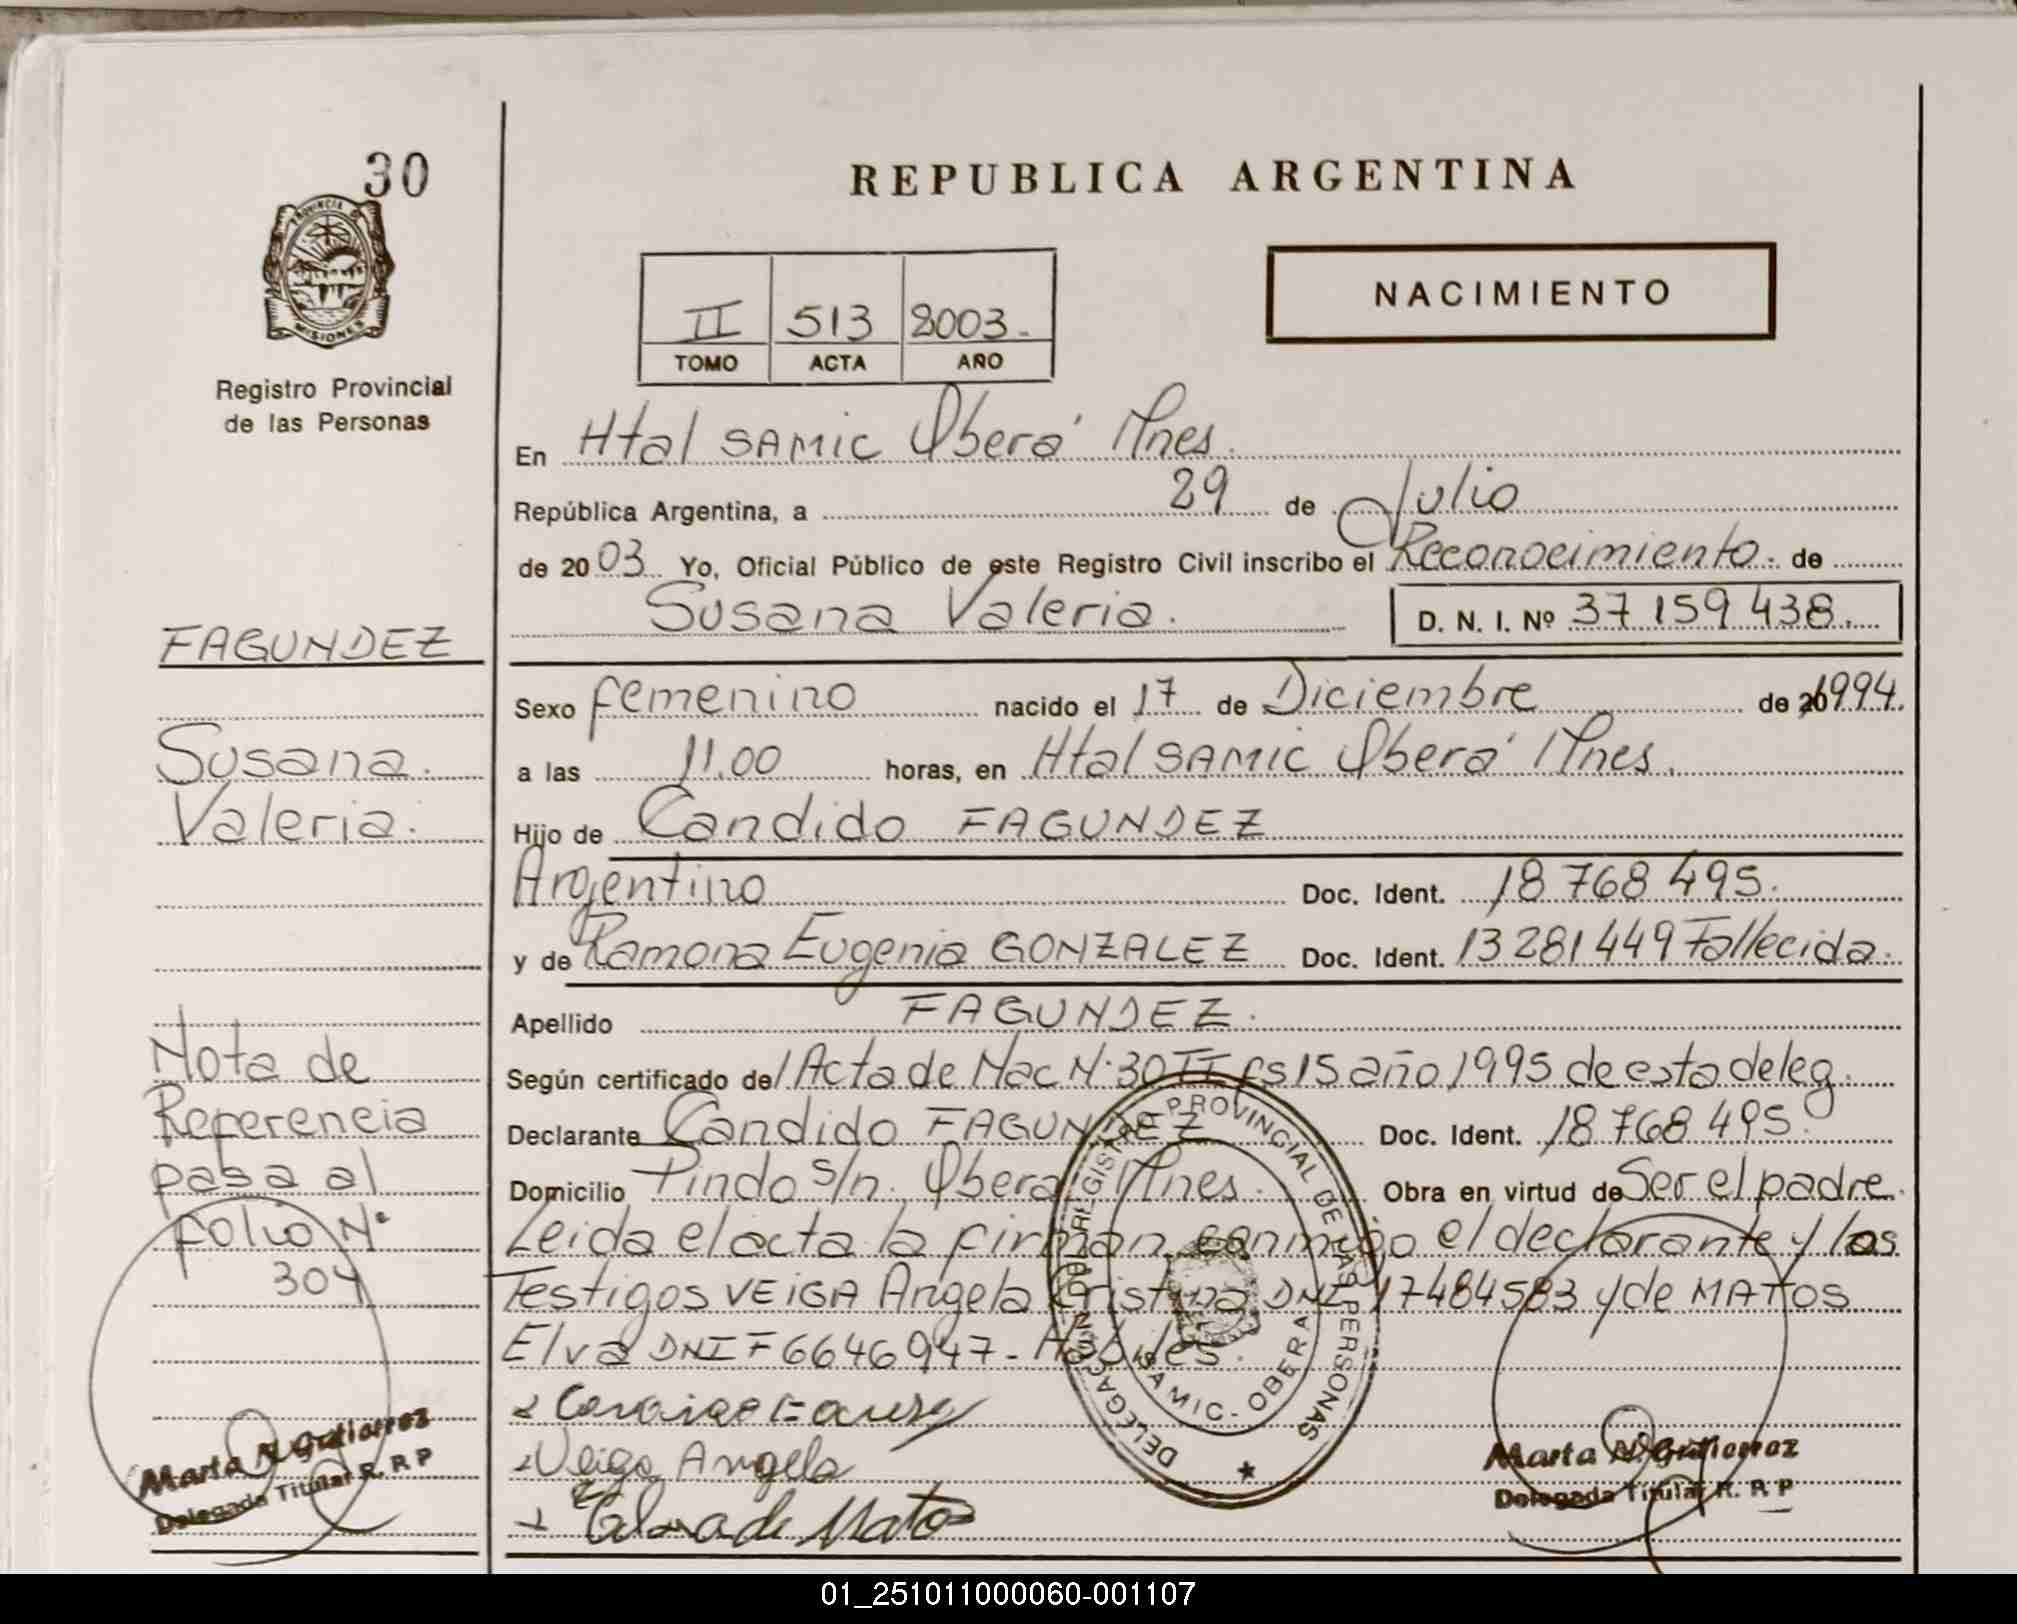 30
PROVINCIA DE
MISIONES
Registro Provincial
de las Personas
REPUBLICA ARGENTINA
II 513 2003.
TOMO ACTA AÑO
NACIMIENTO
En Htal SAMIC Oberá Mnes.
República Argentina, a 29 de Julio
de 2003 Yo, Oficial Público de este Registro Civil inscribo el Reconocimiento. de
Susana Valeria. D. N. I. Nº 37 159 438.
FAGUNDEZ
Susana
Valeria.
Sexo femenino nacido el 17 de Diciembre de 20 1994.
a las 11.00 horas, en Htal SAMIC Oberá Mnes.
Hijo de Candido FAGUNDEZ
Argentino Doc. Ident. 18 768 495.
y de Ramona Eugenia GONZALEZ Doc. Ident. 13 281 449 Fallecida.
Apellido FAGUNDEZ.
Según certificado del Acta de Nac Nº 30 TII fs 15 año 1995 de esta deleg.
Declarante Candido FAGUNDEZ Doc. Ident. 18 768 495.
Domicilio Pindo s/n. Oberá Mnes. Obra en virtud de Ser el padre.
Leida el acta la firman conmigo el declarante y los
Testigos VEIGA Angela Cristina DNI 17484583 y de MATOS
Elva DNI F6646947- Hábiles.
Veiga Angela
Elva de Matos
Nota de
Referencia
pasa al
folio Nº
304
Marta N. Gutierrez
Delegada Titular R. R P
DELEGACION REGISTRO PROVINCIAL DE LAS PERSONAS
SAMIC - OBERA
Marta N. Gutierrez
Delegada Titular R. R P
01_251011000060-001107